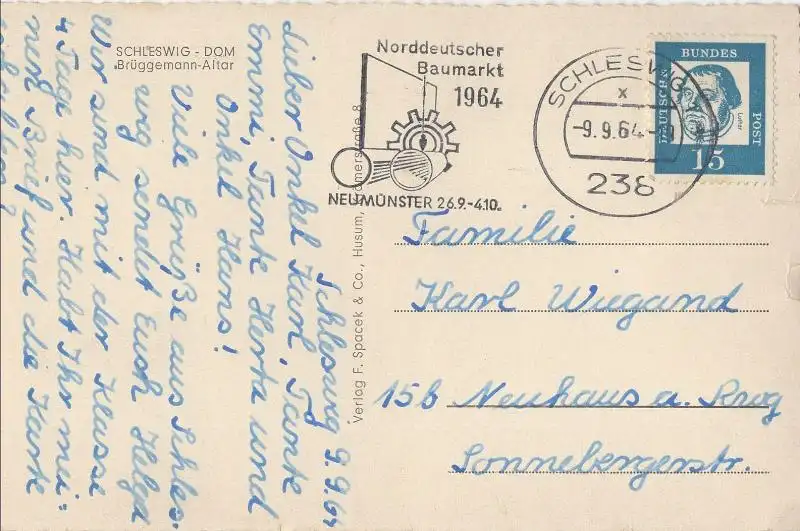 SCHLESWIG - DOM
Brüggemann-Altar
Schleswig 9.9.64
Lieber Onkel Karl, Tante
Emmi, Tante Herta und
Onkel Hans!
Viele Grüße aus Schles-
wig sendet Euch Helga
Wir sind mit der Klasse
4 Tage hier. Habt Ihr mei=
nen Brief und die Karte
Verlag F. Spacek & Co., Husum,
Norddeutscher
Baumarkt
1964
NEUMÜNSTER 26.9.-4.10.
SCHLESWIG
x
-9.9.64
238
DEUTSCHE
BUNDES
POST
Luther
15
Familie
Karl Wiegand
15b Neuhaus a. Rwg
Sonnebergerstr.